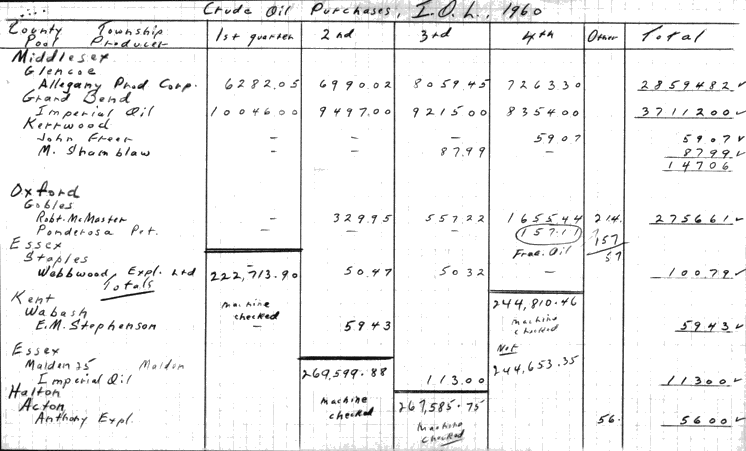 Crude Oil Purchases, I.O.L., 1960
County Township
Pool Producer 1st quarter 2nd 3rd 4th Other Total
Middlesex
Glencoe
Allegany Prod Corp. 6282.05 6990.02 8059.45 7263.30 2859482
Grand Bend
Imperial Oil 1004600 9497.00 921500 835400 3711200
Kerrwood
John Freer - - - 59.07 5907
M. Shamblaw - - 87.99 - 8799
14706
Oxford
Gobles
Robt. McMaster - 329.95 557.22 1655.44 214. 275661
Ponderosa Pet. - - - 157.11 157
Essex Frac. Oil 57
Staples
Webbwood Expl. Ltd - 50.47 5032 - 10079
Totals 222,713.90
Kent machine checked 244,810.46
Wabash machine checked
E.M. Stephenson - 5943 5943
Essex Net
Malden 25 Malden 244,653.35
Imperial Oil 269,599.88 113.00 11300
Halton
Acton machine checked 267,585.75
Anthony Expl. machine checked 56. 5600